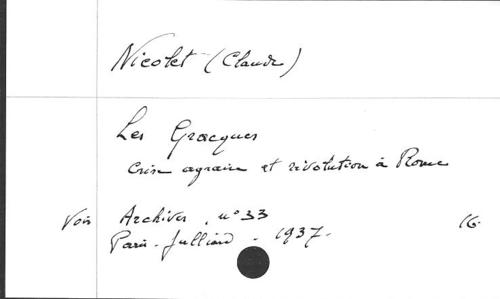 Nicolet (Claude)
Les Gracques
Crise agraire et révolution à Rome
Voir Archives n° 33
Paris - Julliard - 1937 - 16.